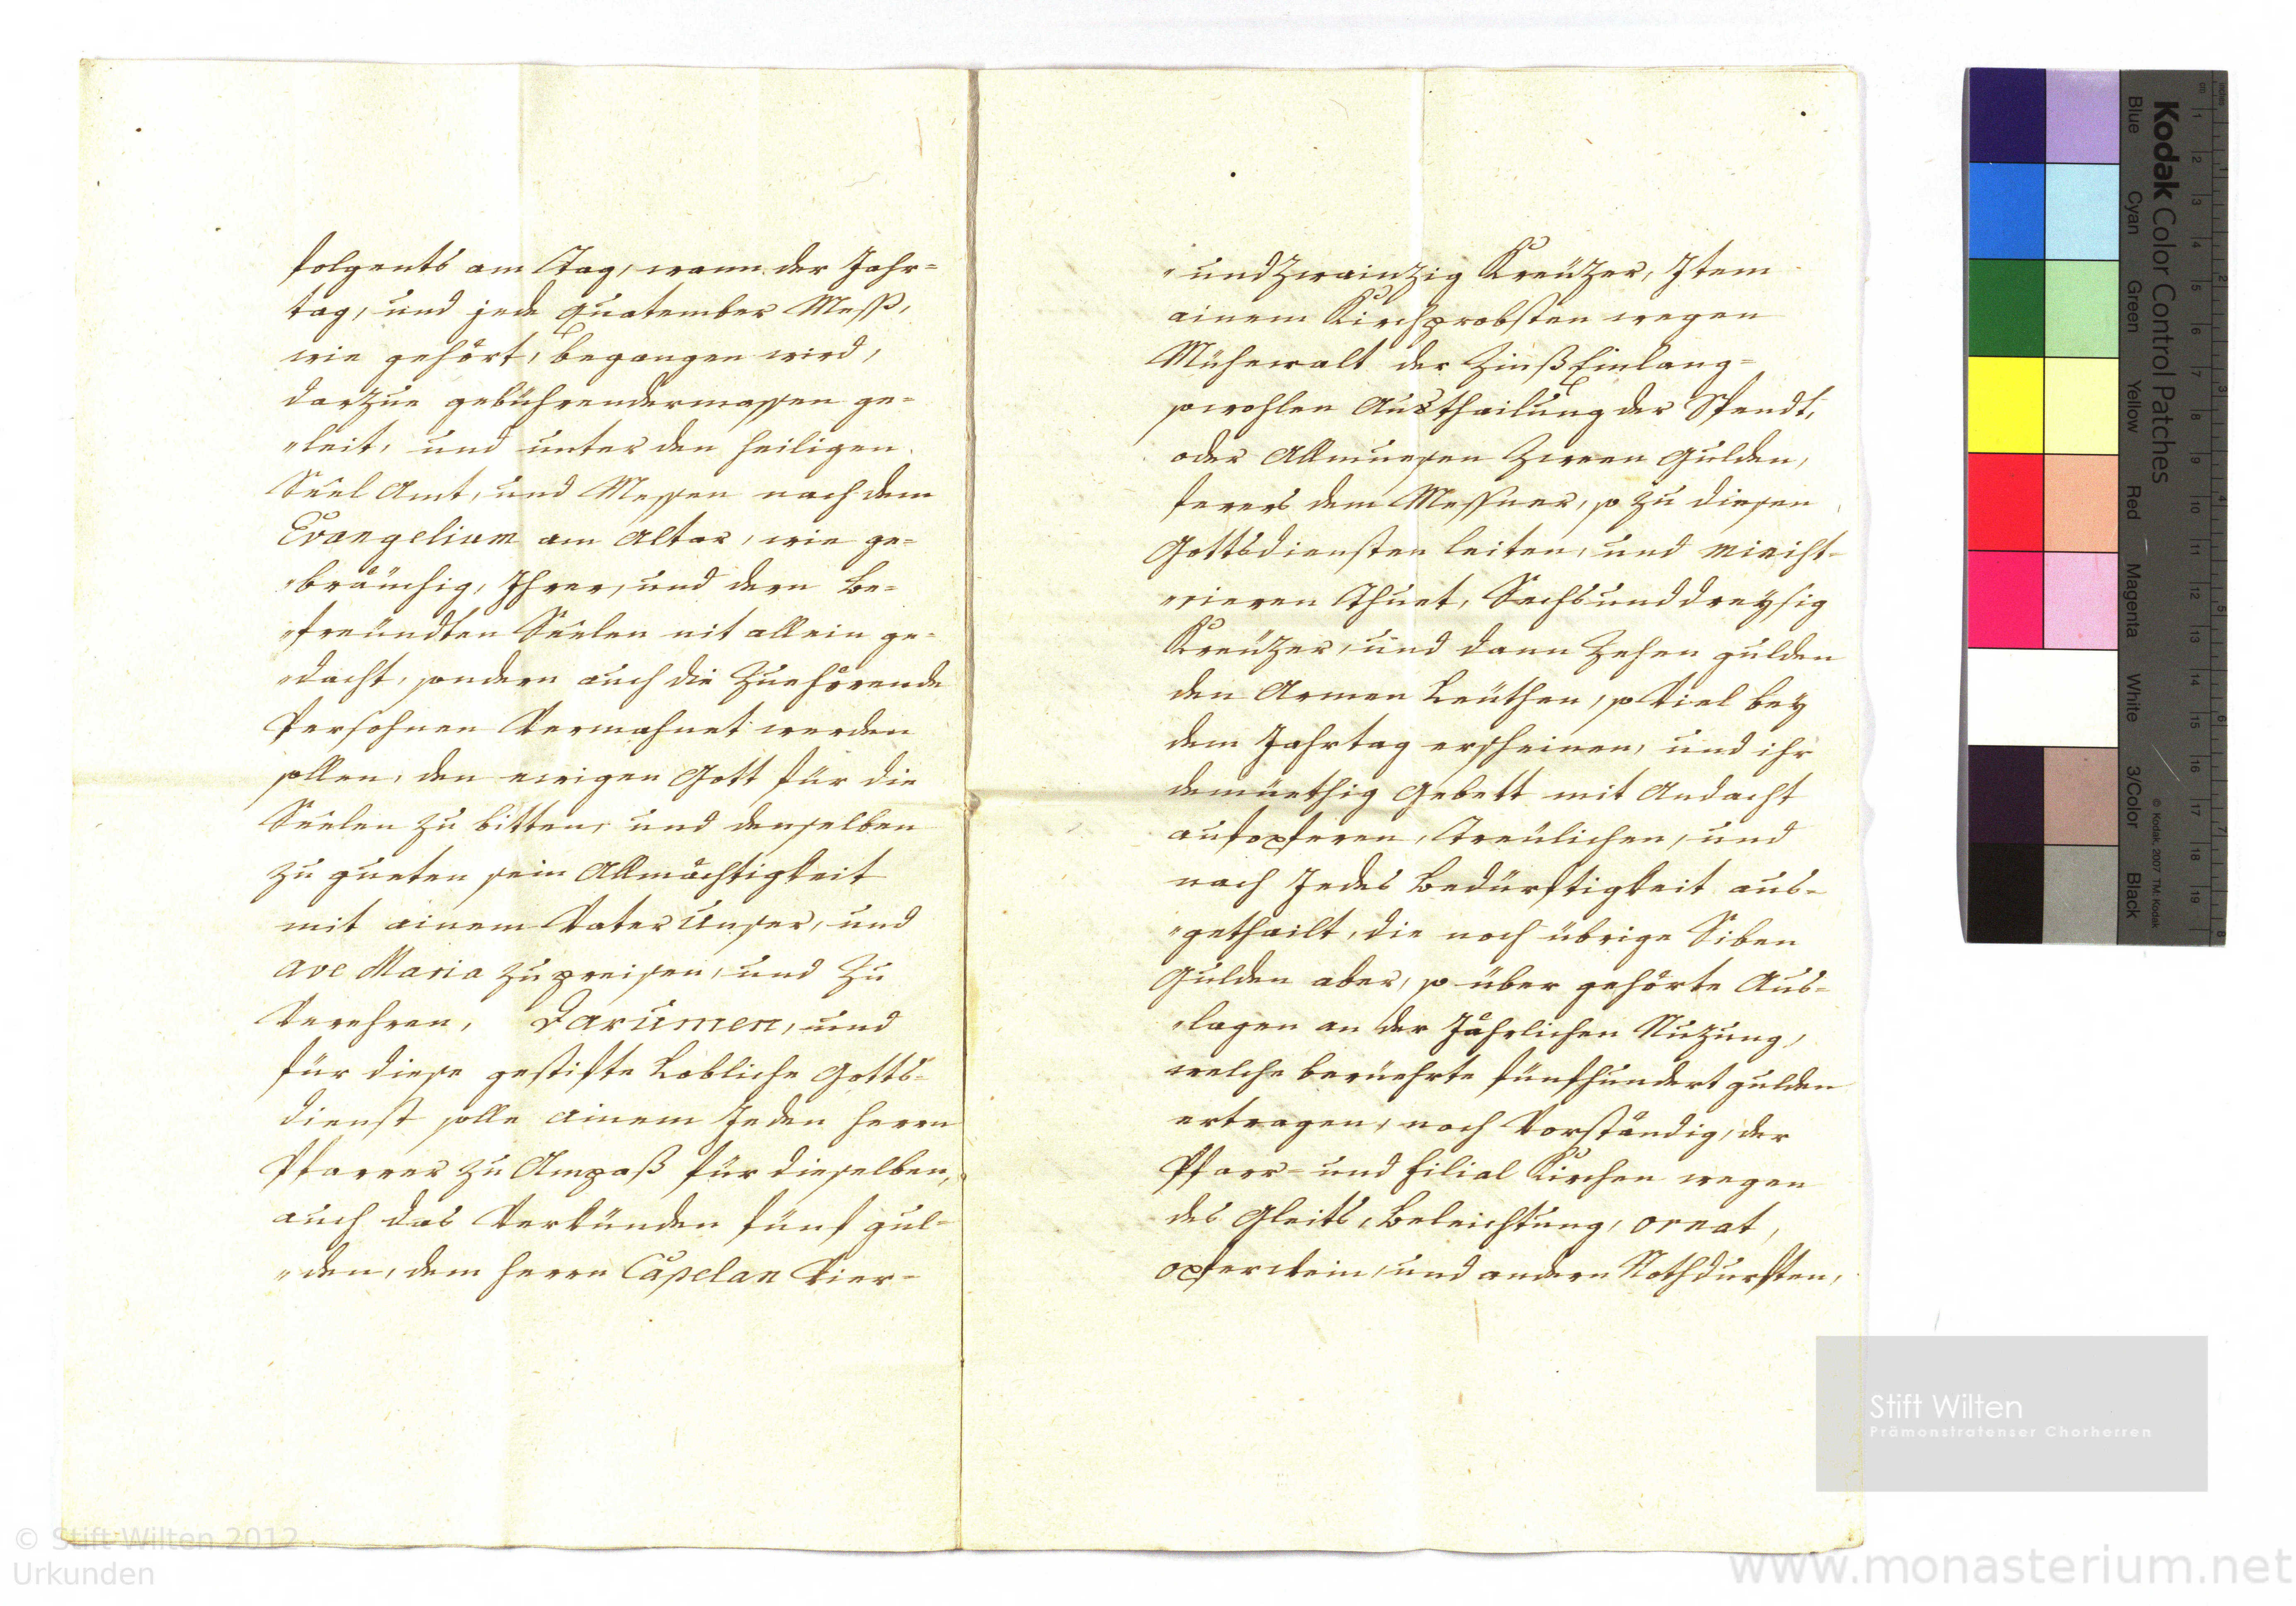 folgents am Tag, wann der Jahr=
tag, und jede quatember Meß,
wie gehört, begangen wird,
darzue gebührendermassen ge=
"leit, und unter den heiligen
Seel Amt, und Messen nach dem
Evangelium am Altar, wie ge=
"bräuchig, Ihrer, und dern be=
"freündten Seelen nit allein ge=
"dacht, sondern auch die Zuehörende
Persohnen Vermahnet werden
sollen, den ewigen Gott für die
Seelen zu bitten, und denselben
zu gueten sein Allmächtigkeit
mit einem Vater Unser, und
Ave Maria zu preisen, und zu
Verehren, Darumen, und
für diese gestifte Lobliche Gotts=
dienst solle ainem Jeden herrn
Pfarrer zu Ampaß für dieselben,
auch das Verkünden fünf gul=
"den, dem herrn Capelan Vier=
"undzwainzig Kreüzer, Item
ainem Kirchprobsten wegen
Mühewalt der Zinß Einlang=
sowohlen Austheilung der Spendt,
oder Allmuesen Zween Gulden,
ferers dem Messner, so zu diesen
Gottsdiensten leiten, und minist=
"rieren Thuet, Sechsunddreysig
Kreüzer, und dann Zehen gulden
den Armen Leüthen, so Viel bey
dem Jahrtag erscheinen, und ihr
demüethig Gebett mit Andacht
aufopferen, Treülichen, und
nach Jedes Bedürftigkeit aus=
"getheilt, die noch übrige Siben
Gulden aber, so über gehörte Aus=
"lagen an der Jährlichen Nuzung,
welche berüehrte fünfhundert gulden
ertragen, noch Vorständig, der
Pfarr= und Filial Kirchen wegen
des Gleits, Beleichtung, ornat,
opferwein, und andern Nothdurften,
Kodak Color Control Patches
Blue Cyan Green Yellow Red Magenta White 3/Color Black
© Kodak, 2007 TM: Kodak
cm 1 2 3 4 5 6 7 8 9 10 11 12 13 14 15 16 17 18 19
inches 1 2 3 4 5 6 7 8
Stift Wilten
Prämonstratenser Chorherren
© Stift Wilten 2012
Urkunden
www.monasterium.net